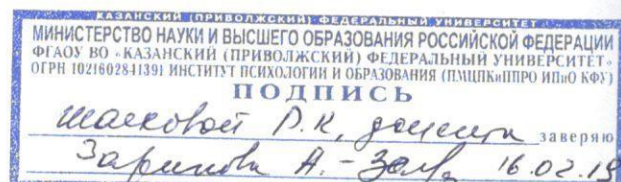 КАЗАНСКИЙ (ПРИВОЛЖСКИЙ) ФЕДЕРАЛЬНЫЙ УНИВЕРСИТЕТ
МИНИСТЕРСТВО НАУКИ И ВЫСШЕГО ОБРАЗОВАНИЯ РОССИЙСКОЙ ФЕДЕРАЦИИ
ФГАОУ ВО «КАЗАНСКИЙ (ПРИВОЛЖСКИЙ) ФЕДЕРАЛЬНЫЙ УНИВЕРСИТЕТ»
ОГРН 1021602841391 ИНСТИТУТ ПСИХОЛОГИИ И ОБРАЗОВАНИЯ (ПМЦПКиППРО ИПиО КФУ)
ПОДПИСЬ
Р.К, доцента заверяю
Зарипова А. - 16.02.19